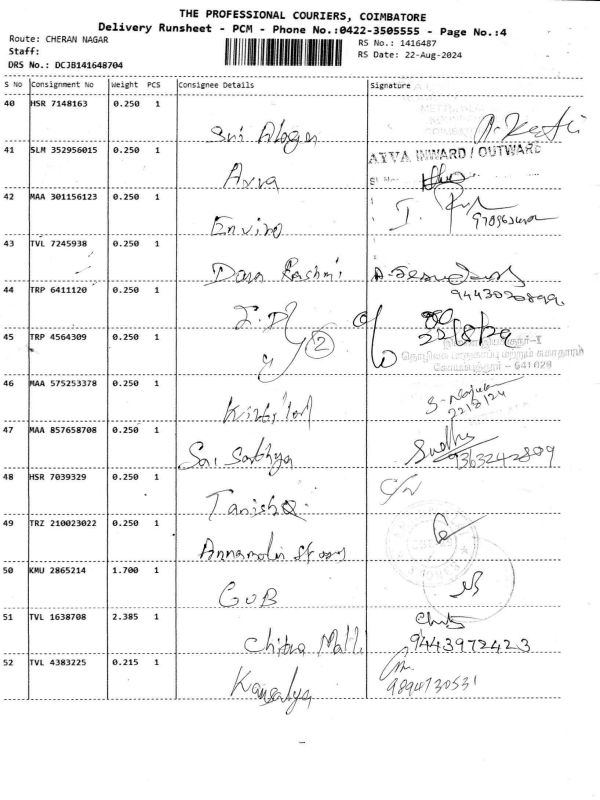 THE PROFESSIONAL COURIERS, COIMBATORE
Delivery Runsheet - PCM - Phone No.:0422-3505555 - Page No.:4
Route: CHERAN NAGAR RS No.: 1416487
Staff: RS Date: 22-Aug-2024
DRS No.: DCJB141648704
S No Consignment No Weight PCS Consignee Details Signature
40 HSR 7148163 0.250 1
Sri
41 SLM 352956015 0.250 1 AYVA INWARD / OUTWARD
Ayva
42 MAA 301156123 0.250 1
Enviro
43 TVL 7245938 0.250 1
Dana Rashmi
9443020899
44 TRP 6411120 0.250 1
22/8/24
2
45 TRP 4564309 0.250 1
தொழிலக பாதுகாப்பு மற்றும் சுகாதாரம்
கோயம்புத்தூர் - 641029
46 MAA 575253378 0.250 1
22/8/24
47 MAA 857658708 0.250 1
Sai Sathya Sudha
9363242809
48 HSR 7039329 0.250 1
Tanishq
49 TRZ 210023022 0.250 1
Annamalai Stores
50 KMU 2865214 1.700 1
GUB
51 TVL 1638708 2.385 1
Chitra Malli 9443972423
52 TVL 4383225 0.215 1
Kausalya 9894730531